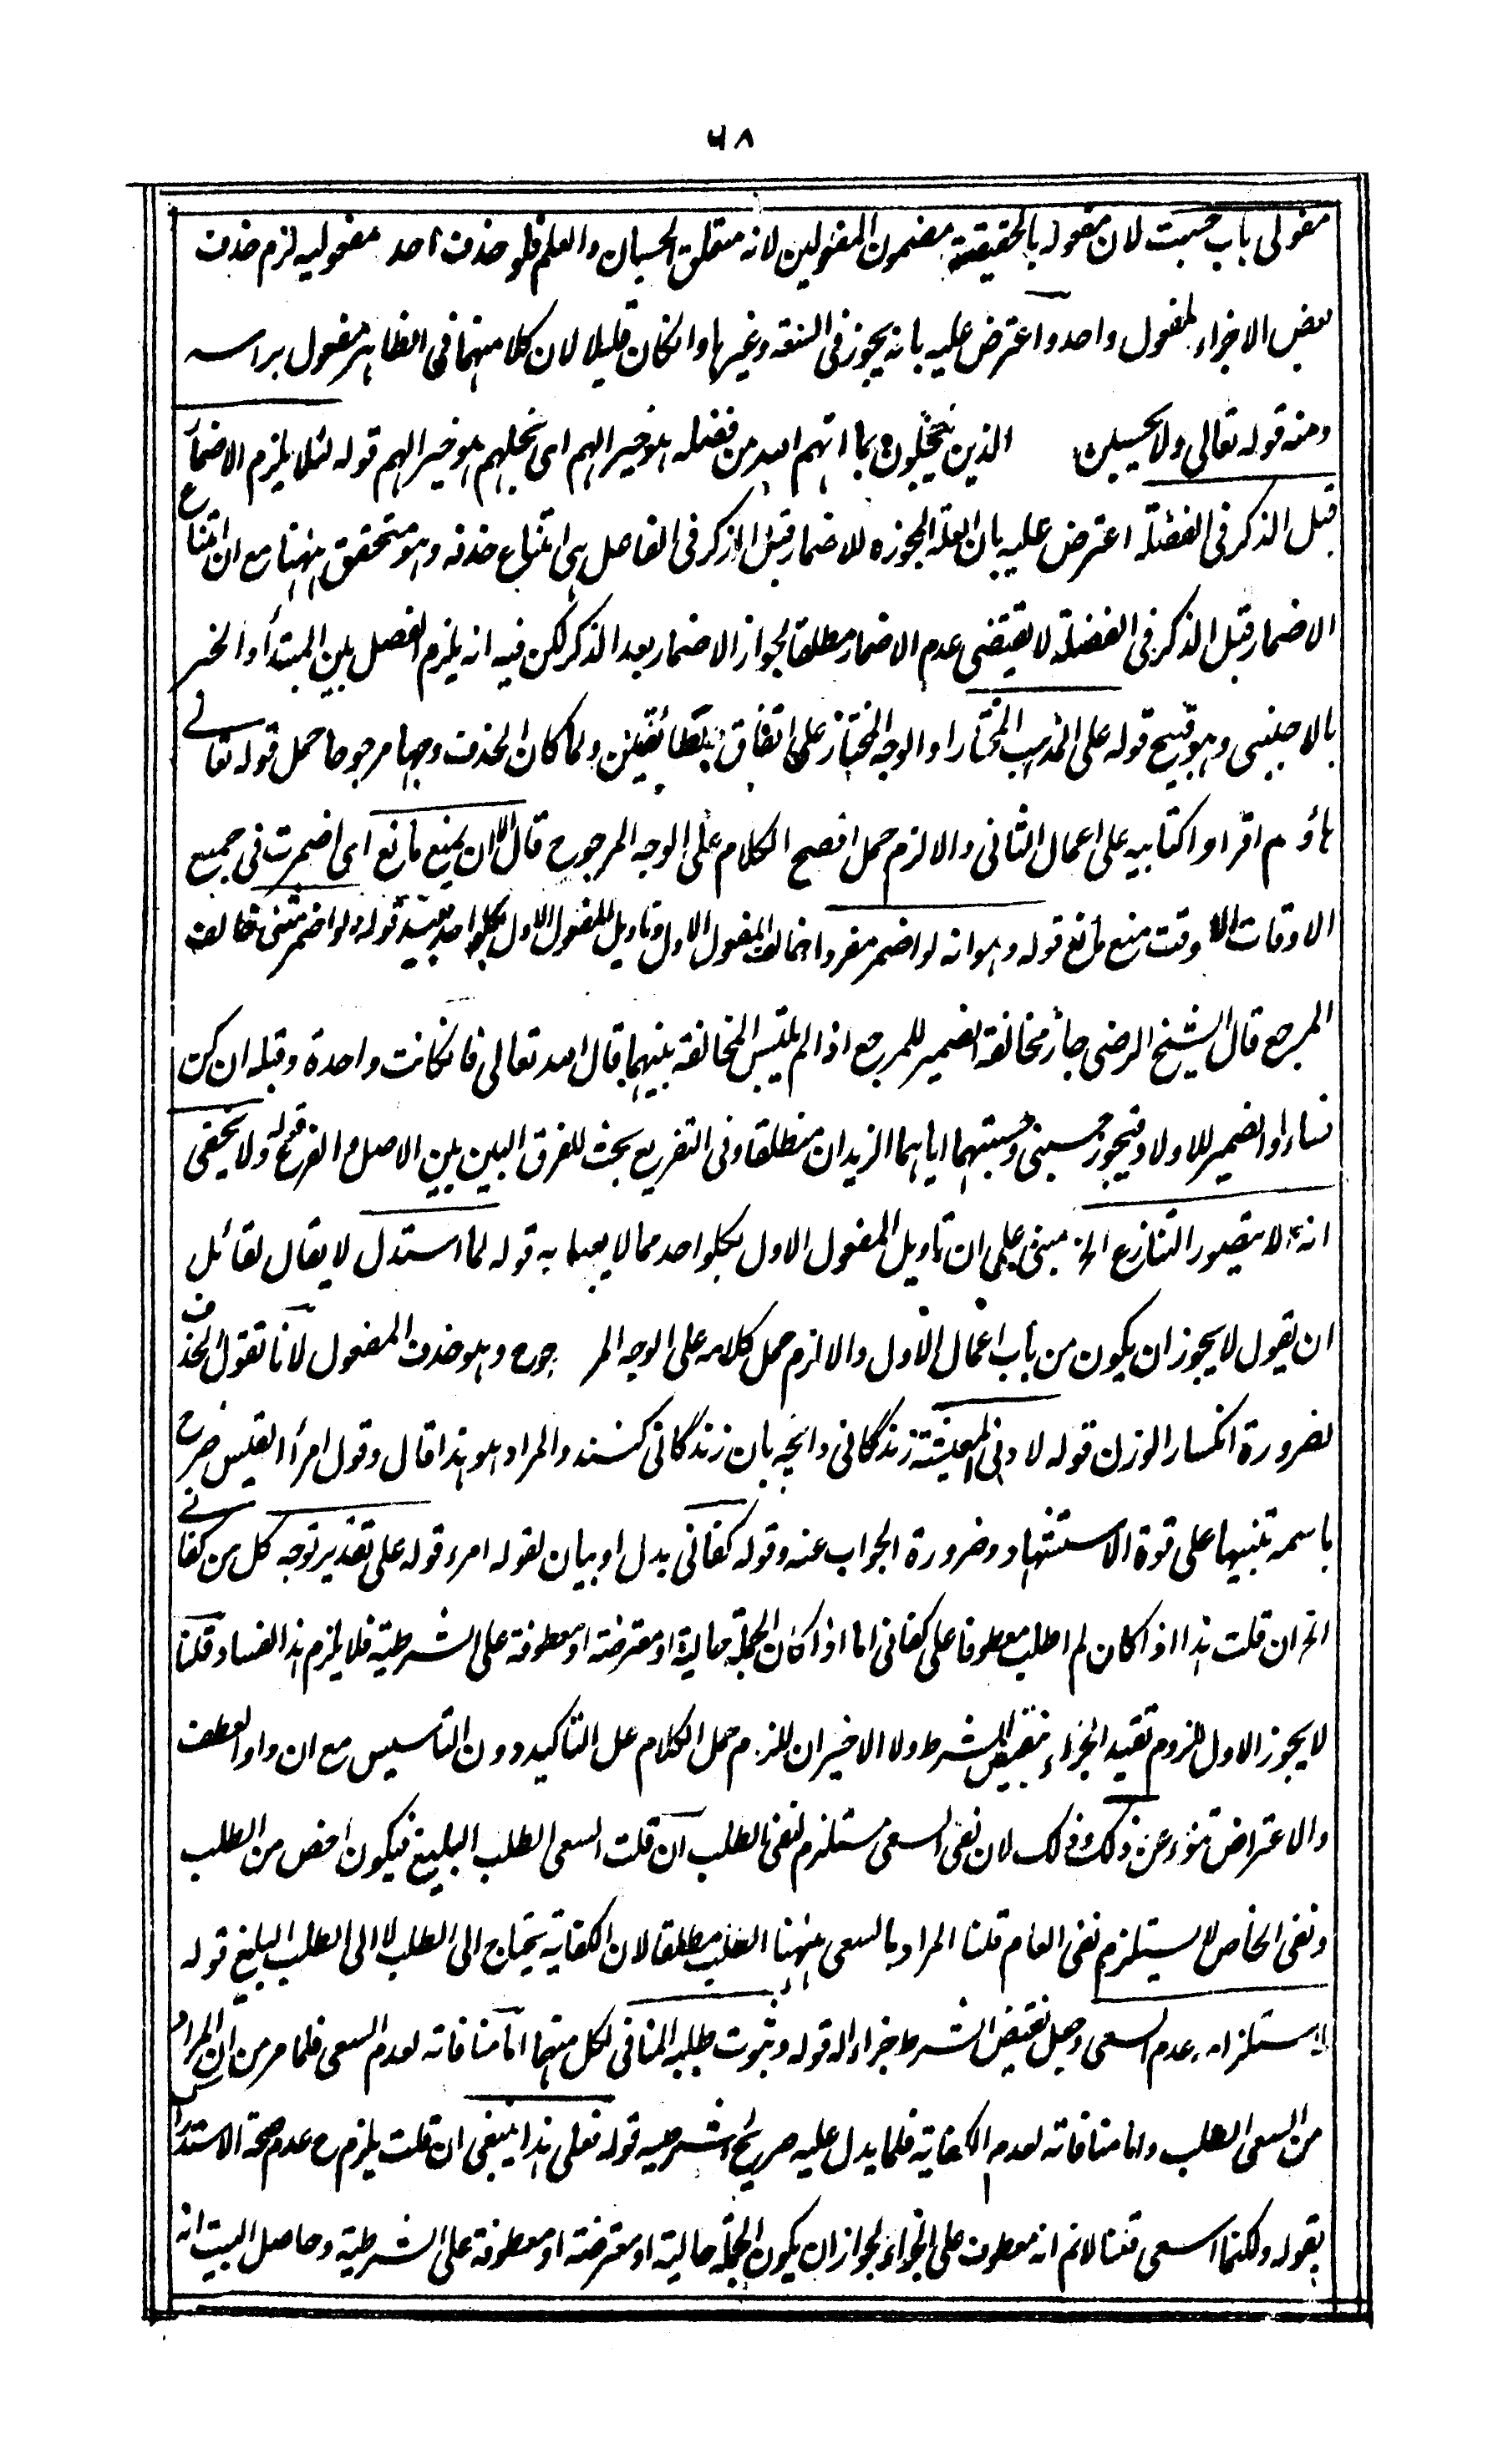 ٦٨
مفعولى باب حسبت لان مفعوله بالحقيقة مضمون المفعولين لانه متعلق الحسبان والعلم فلو حذف احد مفعوليه لزم حذف
بعض الاجزاء لمفعول واحد واعترض عليه بانه يجوز فى السعة وغيرها وانكان قليلا لان كلا منهما فى الظاهر مفعول براسه
ومنه قوله تعالى ولا يحسبن الذين يبخلون بما اتهم الله من فضله هو خيرا لهم اى بخلهم هو خيرا لهم قوله لئلا يلزم الاضمار
قبل الذكر فى الفضلة اعترض عليه بان العلة المجوزه للاضمار قبل الذكر فى الفاصل هى امتناع حذفه وهو متحقق ههنا مع ان امتناع
الاضمار قبل الذكر فى الفضلة لا يقتضى عدم الاضمار مطلقا لجواز الاضمار بعد الذكر لكن فيه انه يلزم الفصل بين المبتدأ والخبر
بالاجنبى وهو قبيح قوله على المذهب المختار او الوجه المختار على اتفاق الطائفتين ولما كان الحذف وجها مرجوحا حمل قوله تعالى
هاؤم اقرأوا كتابيه على اعمال الثانى والا لزم حمل افصح الكلام على الوجه المرجوح قال الا ان يمنع مانع اى اضمرت فى جميع
الاوقات الا وقت منع مانع قوله وهو انه لو اضمر مفردا خالف المفعول الاول وتاويل المفعول الاول بكلواحد بعيد قوله ولو اضمر مثنى خالف
المرجع قال الشيخ الرضى جاز مخالفة الضمير للمرجع اذا لم يلتبس المخالفة بينهما قال الله تعالى فان كانت واحدة وقبله ان كن
نساء والضمير للاولاد فيجوز حسبنى وحسبتهما اياهما الزيدان منطلقا وفى التفريع بحث للفرق البين بين الاصل والفرع قوله ولا يخفى
انه لا يتصور التنازع الخ مبنى على ان تاويل المفعول الاول بكلواحد مما لا يعبا به قوله لما استدل لا يقال لقائل
ان يقول لا يجوز ان يكون من باب اعمال الاول والا لزم حمل كلامه على الوجه المرجوح وهو حذف المفعول لانا نقول الحذف
لضرورة انكسار الوزن قوله لادنى المعيشة زندگانى وانچه بان زندگانى كنند والمراد هو هذا قال وقول امرأ القيس صرح
باسمه تنبيها على قوة الاستشهاد وضرورة الجواب عنه وقوله كفانى بدل او بيان لقوله امرء قوله على تقدير توجه كل من كفانى
الخ ان قلت هذا اذا كان لم اطلب معطوفا على كفانى اما اذا كان الجملة حالية او معترضة او معطوفة على الشرطية فلا يلزم هذا الفساد قلنا
لا يجوز الاول للزوم تقييد الجزاء بنقيض الشرط ولا الاخيران للزوم حمل الكلام على التاكيد دون التاسيس مع ان واو العطف
والاعتراض تنوء عن ذلك وذلك لان نفى السعى مستلزم لنفى الطلب ان قلت السعى الطلب البليغ فيكون اخص من الطلب
ونفى الخاص لا يستلزم نفى العام قلنا المراد بالسعى ههنا الطلب مطلقا لان الكفاية يحتاج الى الطلب لا الى الطلب البليغ قوله
لاستلزامه عدم السعى وجعل نقيض الشرط جزاء له قوله وثبوت طلبه المنافى لكل منهما اما منافاته لعدم السعى فلما مر من ان المراد
من السعى الطلب واما منافاته لعدم الكفاية فلما يدل عليه صريح الشرطية قوله فعلى هذا ينبغى ان قلت يلزم ح عدم صحة الاستدراك
بقوله ولكنما اسعى قلنا لانم انه معطوف على الجزاء لجواز ان يكون الجملة حالية او معترضة او معطوفة على الشرطية وحاصل البيت انه